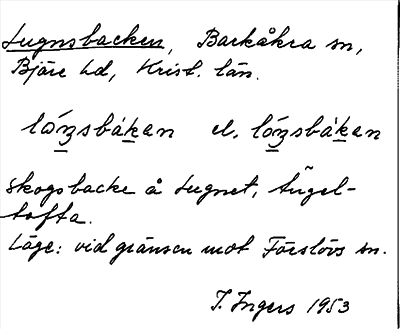 Lugnsbacken, Barkåkra sn,
Bjäre hd, Krist. län.
skogsbacke å Lugnet, Ängel-
tofta.
Läge: vid gränsen mot Förslövs sn.
I. Ingers 1953